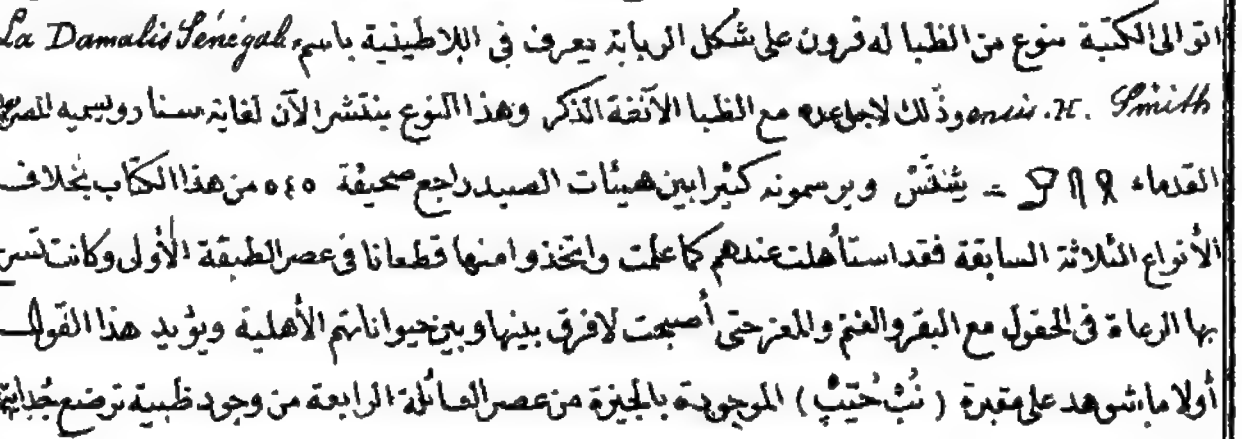 اتوا الى الكتبة بنوع من الظبا له قرون على شكل الربابة يعرف فى اللاطينية باسم La Damalis Sénégal
ensis. H. Smith وذلك لاجل عده مع الظبا الآنفة الذكر وهذا النوع ينتشر الآن لغاية سنار ويسميه المصريون
القدماء = شنتس ويرسمونه كثيرا بين هيئات الصيد راجع صحيفة ٥٤٥ من هذا الكتاب بخلاف
الأنواع الثلاثة السابقة فقد استأهلت عندهم كما علمت واتخذوا منها قطعانا فى عصر الطبقة الأولى وكانت تسرح
بها الرعاة فى الحقول مع البقر والغنم والمعز حتى أصبحت لا فرق بينها وبين حيواناتهم الأهلية ويؤيد هذا القول
أولا ما شوهد على مقبرة ( نُبْ حُتِيبْ ) الموجودة بالجيزة من عصر العائلة الرابعة من وجود ظبية ترضع جدايتها